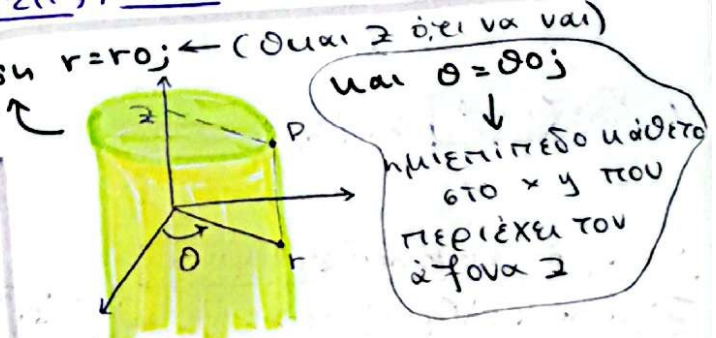 r=r0; ← (θ και z ό,τι να ναι)
και θ=θ0;
↓
ημιεπίπεδο κάθετο
στο x y που
περιέχει τον
άξονα z
z
P
θ
r